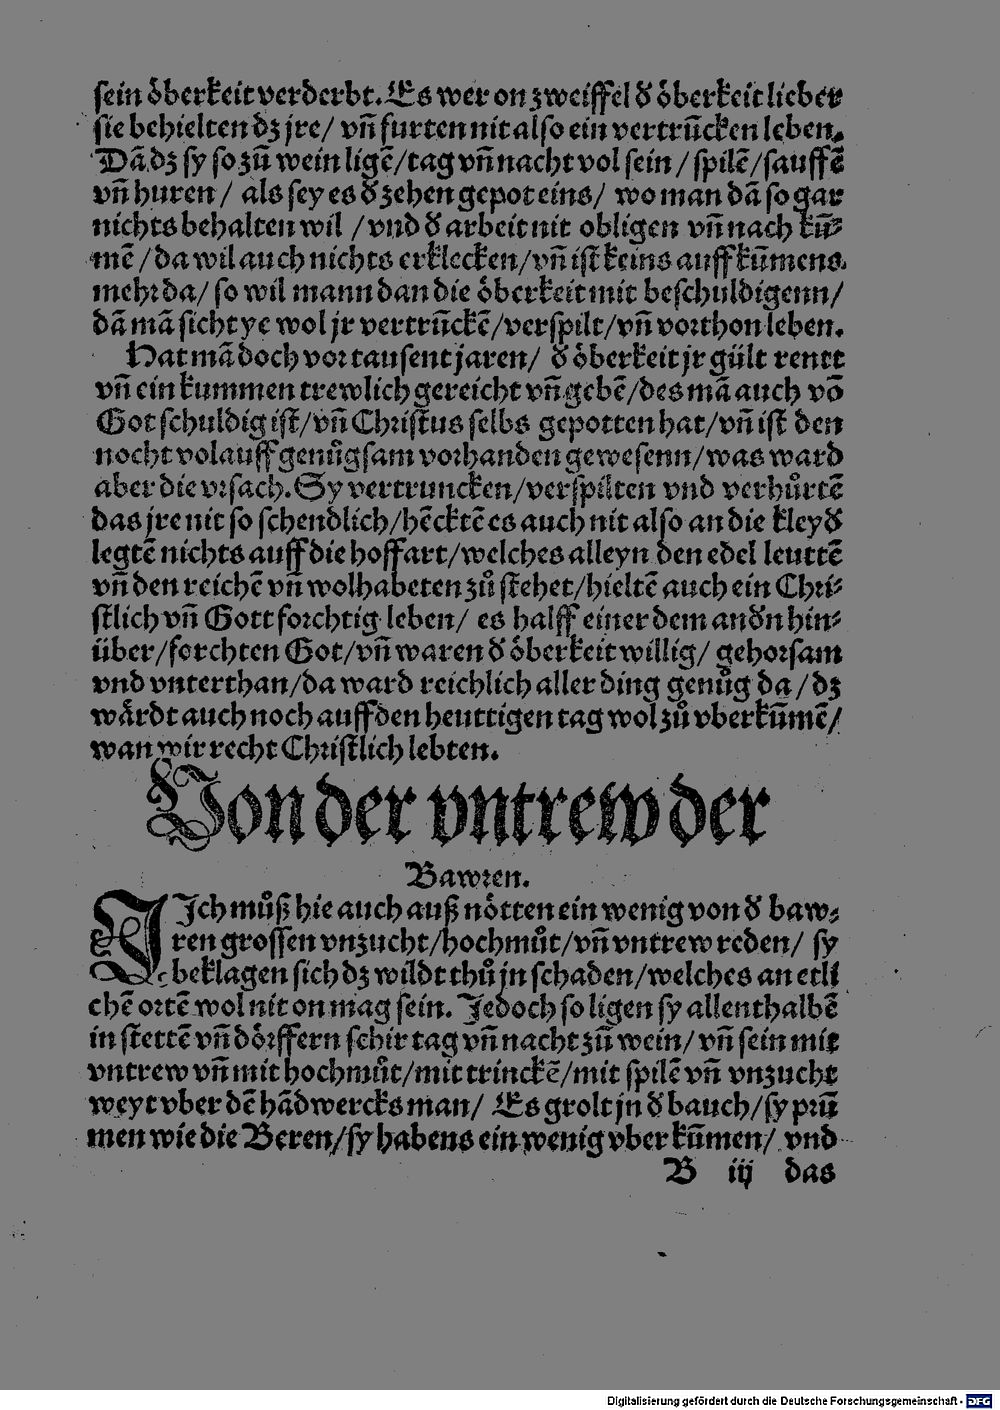 sein öberkeit verderbt. Es wer on zweiffel ď öberkeit lieber
sie behielten dz jre/ vñ furten nit also ein vertrũcken leben.
Dã dz sy so zů wein ligẽ/tag vñ nacht vol sein/ spilẽ/sauffẽ
vñ huren/ als sey es ď zehen gepot eins/ wo man dã so gar
nichts behalten wil /vnd ď arbeit nit obligen vñ nach kũ-
mẽ /da wil auch nichts erklecken/vñ ist keins auffkũmens
mehr da/ so wil mann dan die öberkeit mit beschuldigenn/
dã mã sicht ye wol jr vertrũckẽ/verspilt/vñ vorthon leben.
Hat mã doch vor tausent jaren/ ď öberkeit jr gült rentt
vñ ein kummen trewlich gereicht vñ gebẽ/des mã auch võ
Got schuldig ist/vñ Christus selbs gepotten hat/vñ ist den
nocht volauff genůgsam vorhanden gewesenn/was ward
aber die vrsach. Sy vertruncken/verspilten vnd verhůrtẽ
das jre nit so schendlich/hẽcktẽ es auch nit also an die kleyď
legtẽ nichts auff die hoffart/welches alleyn den edel leuttẽ
vñ den reichẽ vñ wolhabeten zů stehet/hieltẽ auch ein Chri-
stlich vñ Gott forchtig leben/ es halff einer dem anďn hin-
über/forchten Got/vñ waren ď öberkeit willig/ gehorsam
vnd vnterthan/da ward reichlich aller ding genůg da/dz
wårdt auch noch auff den heuttigen tag wol zů vberkũmẽ/
wan wir recht Christlich lebten.
Von der vntrew der
Bawren.
JIch můß hie auch auß nötten ein wenig von ď baw-
ren grossen vnzucht/hochmůt/vñ vntrew reden/ sy
beklagen sich dz wildt thů jn schaden/welches an etli
chẽ ortẽ wol nit on mag sein. Jedoch so ligen sy allenthalbẽ
in stettẽ vñ dörffern schir tag vñ nacht zů wein/ vñ sein mit
vntrew vñ mit hochmůt/mit trinckẽ/mit spilẽ vñ vnzucht
weyt vber dẽ hãdwercksman/ Es grolt jn ď bauch/sy prũ
men wie die Beren/sy habens ein wenig vberkũmen/ vnd
B iij das
Digitalisierung gefördert durch die Deutsche Forschungsgemeinschaft - DFG